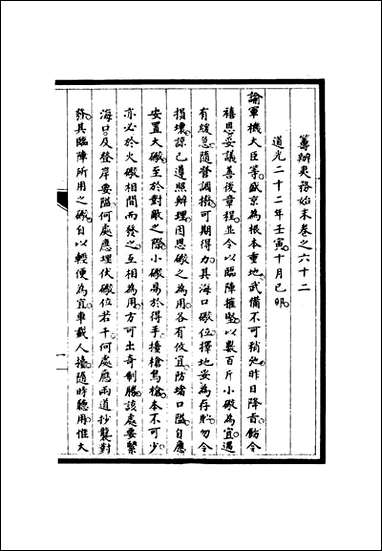 籌辦夷務始末卷之六十二
道光二十二年壬寅十月己卯
諭軍機大臣等盛京為根本重地武備不可稍弛昨日降旨飭令
禧恩妥議善後章程並令以臨陣摧堅以數百斤小礮為宜遇
有緩急隨督調撥可期得力其海口礮位擇地妥為存貯勿令
損壞諒已遵照辦理因思礮之為用各有攸宜防堵口隘自應
安置大礮至於對敵之際小礮易於得手擡槍鳥槍本不可少
亦必於火礮相間而發之互相為用方可出奇制勝該處要緊
海口及登岸要隘何處應埋伏礮位若干何處應兩道抄襲對
發其臨陣所用之礮自以輕便為宜車載人擡隨時聽用惟大
一